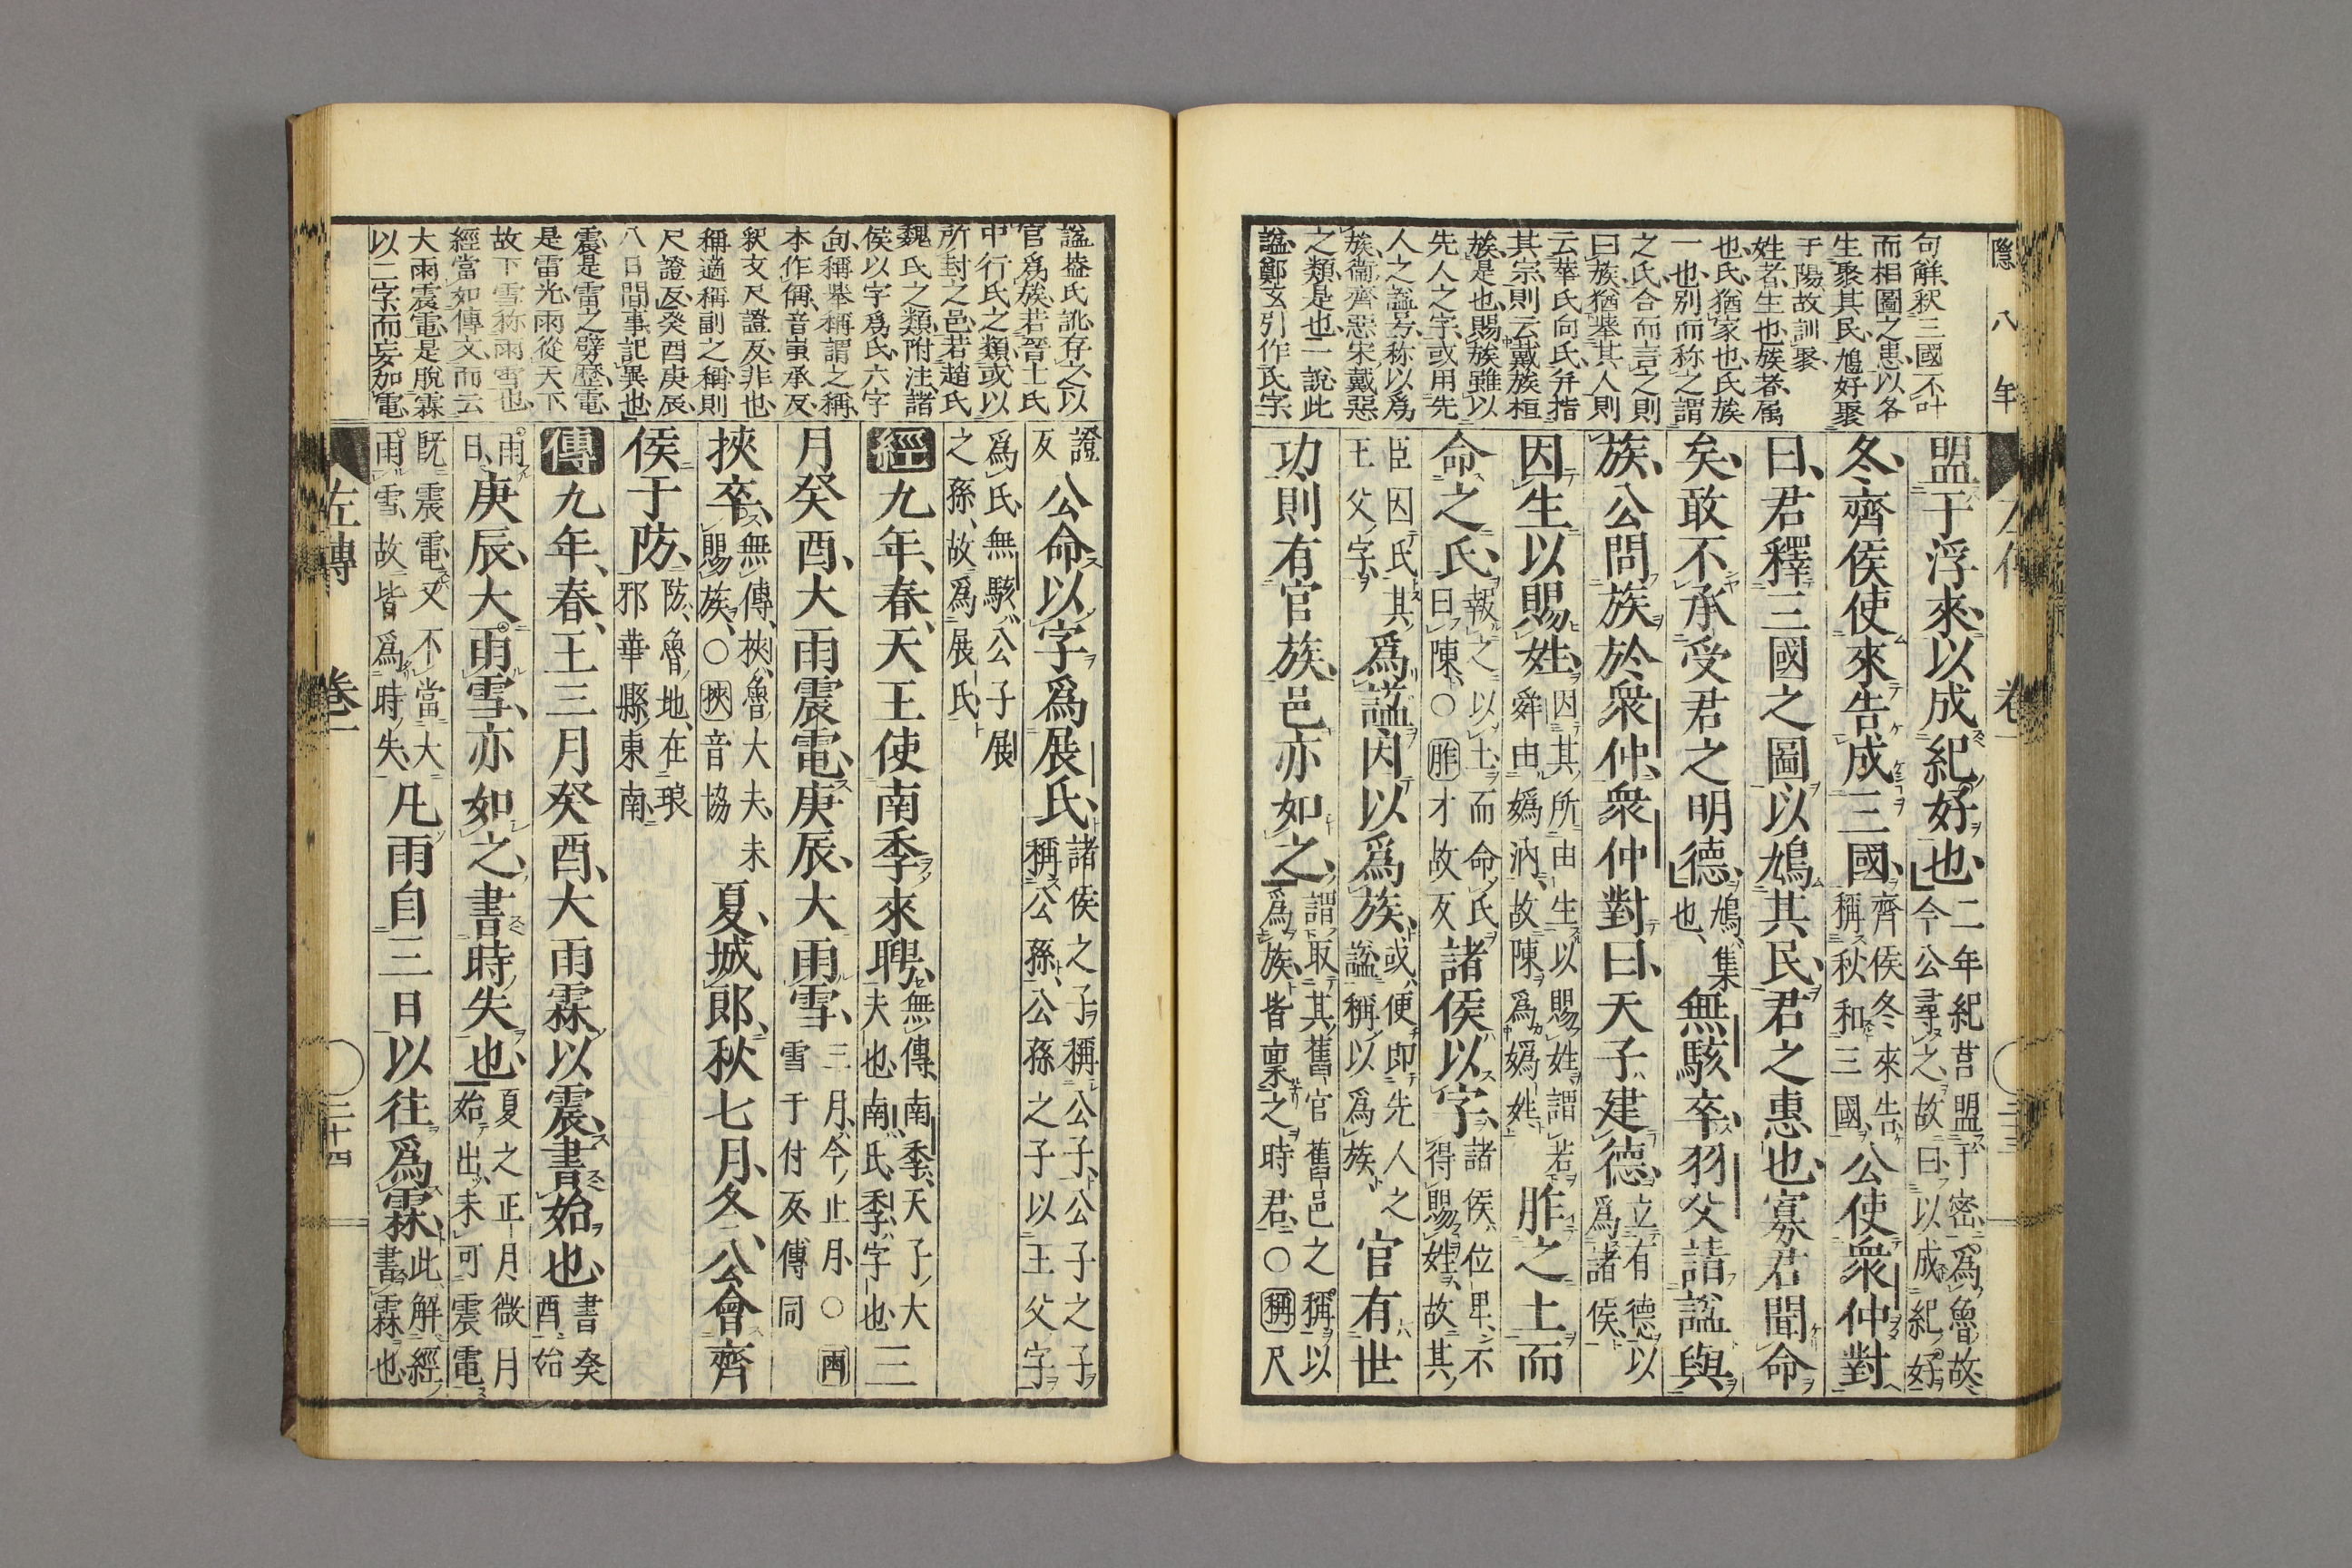 隱八年
句解釈三國不叶
而相圖之患以各
生聚其民鳩好聚
于陽故訓聚
姓者生也族者属
也氏猶家也氏族
一也別而称之謂
之氏合而言之則
曰族猶挙其人則
云華氏向氏并指
其宗則云戴族桓
族是也賜族雖以
先人之字或用先
人之諡号称以爲
族衛齊惡宋戴惡
之類是也一說此
諡鄭玄引作氏字
盟于浮來以成紀好也二年紀莒盟于密爲魯故今公尋之故曰以成紀好
冬齊侯使來告成三國齊侯冬來告稱秋和三國公使衆仲對
曰君釋三國之圖以鳩其民君之惠也寡君聞命
矣敢不承受君之明德鳩集也無駭卒羽父請諡與
族公問族於衆仲衆仲對曰天子建德立有德以爲諸侯
因生以賜姓因其所由生以賜姓謂若舜由嬀汭故陳爲嬀姓胙之土而
命之氏報之以土而命氏曰陳○胙才故反諸侯以字諸侯位卑不得賜姓故其
臣因氏其王父字爲諡因以爲族或便即先人之諡稱以爲族官有世
功則有官族邑亦如之謂取其舊官舊邑之稱以爲族皆稟之時君○稱尺
左傳 卷一 二十三
諡益氏訛存之以
官爲族若晉士氏
中行氏之類或以
所封之邑若趙氏
魏氏之類附注諸
侯以字爲氏六字
句稱挙稱謂之稱
本作偁音蚩承反
釈文尺證反非也
稱適稱副之稱則
尺證反癸酉庚辰
八日間事記異也
震是雷之劈歷電
是雷光雨從天下
故下雪称雨雪也
經當如傳文而云
大雨震電是脫霖
以二字而妄加電
證反公命以字爲展氏諸侯之子稱公子公子之子稱公孫公孫之子以王父字
爲氏無駭公子展之孫故爲展氏
經九年春天王使南季來聘無傳南季天子大夫也南氏季字也三
月癸酉大雨震電庚辰大雨雪三月今正月○雨雪于付反傳同
挾卒無傳挾魯大夫未賜族○挾音協夏城郎秋七月冬公會齊
侯于防防魯地在琅邪華縣東南
傳九年春王三月癸酉大雨霖以震書始也書癸酉始
雨日庚辰大雨雪亦如之書時失也夏之正月微月始出未可震電
既震電又不當大雨雪故皆爲時失凡雨自三日以往爲霖此解經書霖也
左傳 卷一 二十四